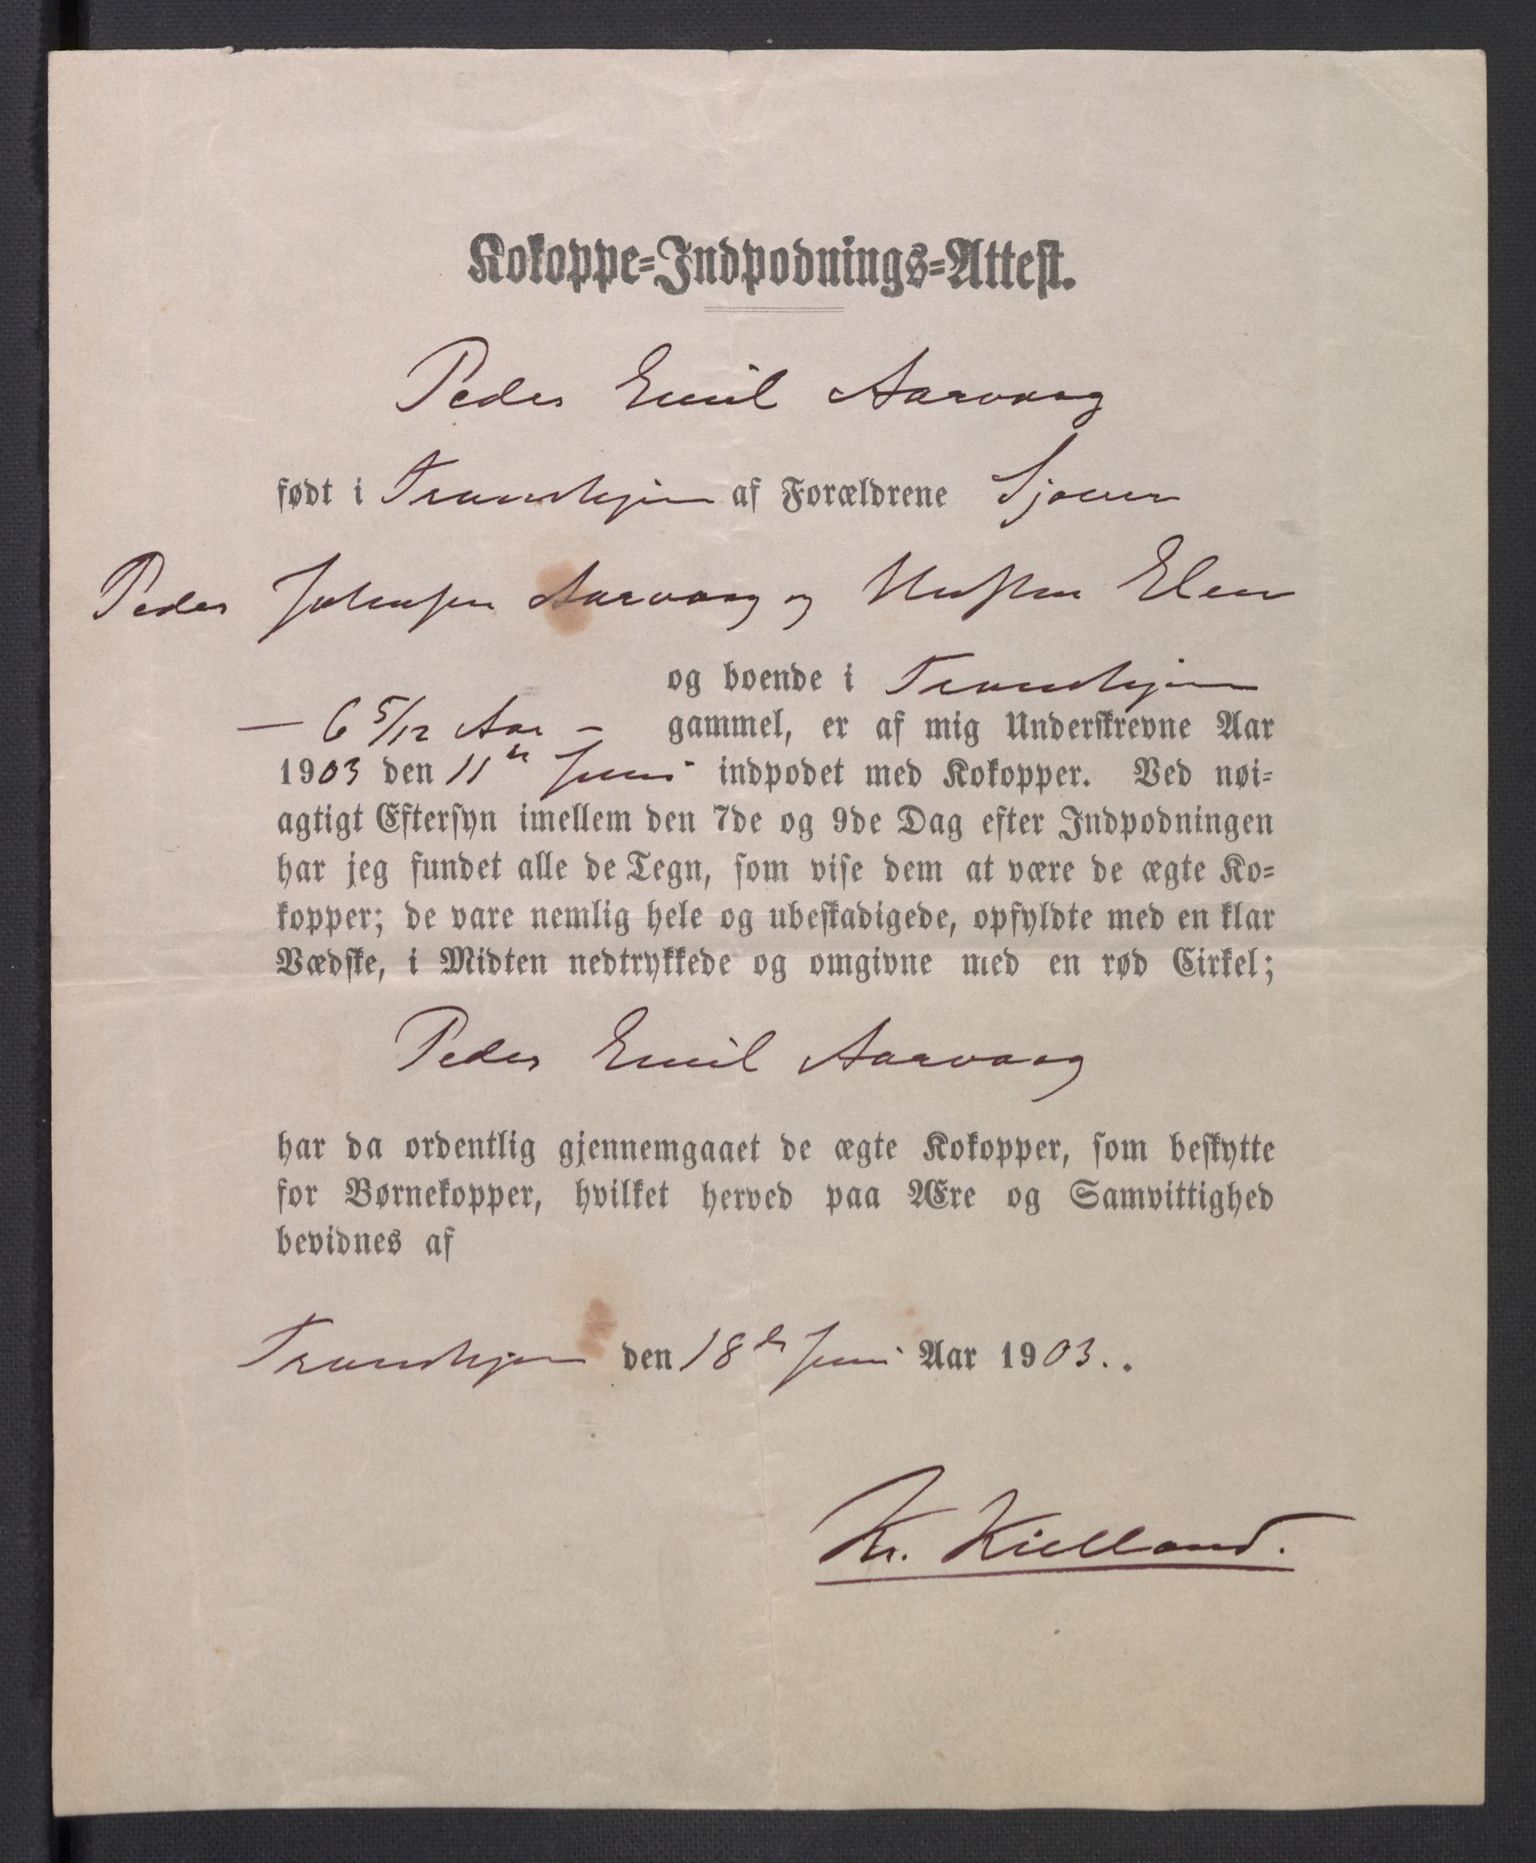 Kokoppe-Indpodnings-Attest.
Peder Emil Aarvaag
født i Trondhjem af Forældrene Sjouer
Peder Johnsen Aarvaag og Hustru Elen
og boende i Trondhjem
— 6 5/12 Aar — gammel, er af mig Underskrevne Aar
1903 den 11te Juni indpodet med Kokopper. Ved nøi-
agtigt Eftersyn imellem den 7de og 9de Dag efter Indpodningen
har jeg fundet alle de Tegn, som vise dem at være de ægte Ko-
kopper; de vare nemlig hele og ubeskadigede, opfyldte med en klar
Vædske, i Midten nedtrykkede og omgivne med en rød Cirkel;
Peder Emil Aarvaag
har da ordentlig gjennemgaaet de ægte Kokopper, som beskytte
for Børnekopper, hvilket herved paa Ære og Samvittighed
bevidnes af
Trondhjem den 18de Juni Aar 1903..
Kr. Kielland.